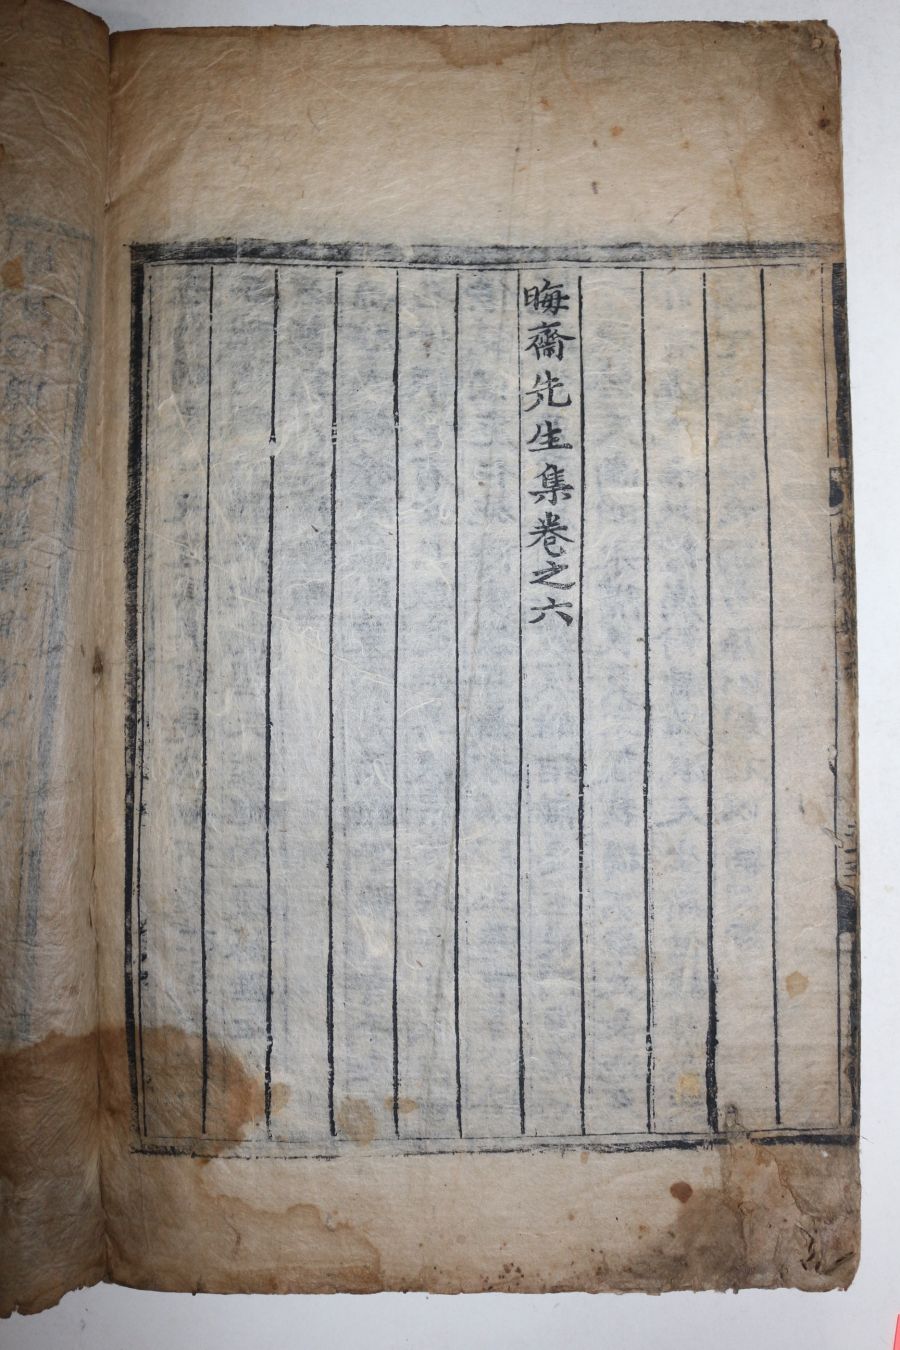 晦齋先生集卷之六